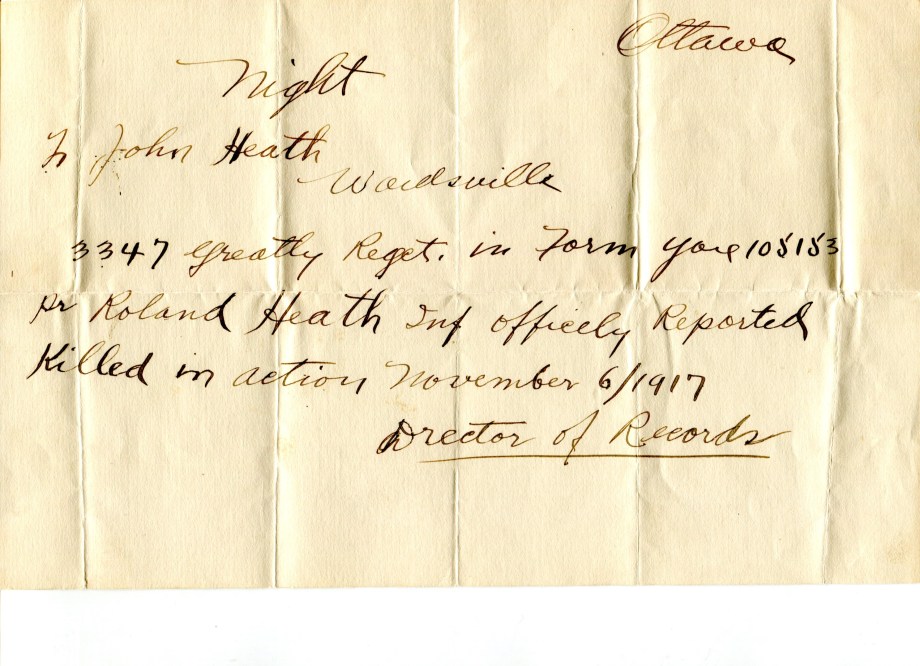 Ottawa
Night
To John Heath
Wardsville
3347 Greatly Reget. in Form you
Pr Roland Heath Inf officely Reported
Killed in action November 6/1917
Drector of Records